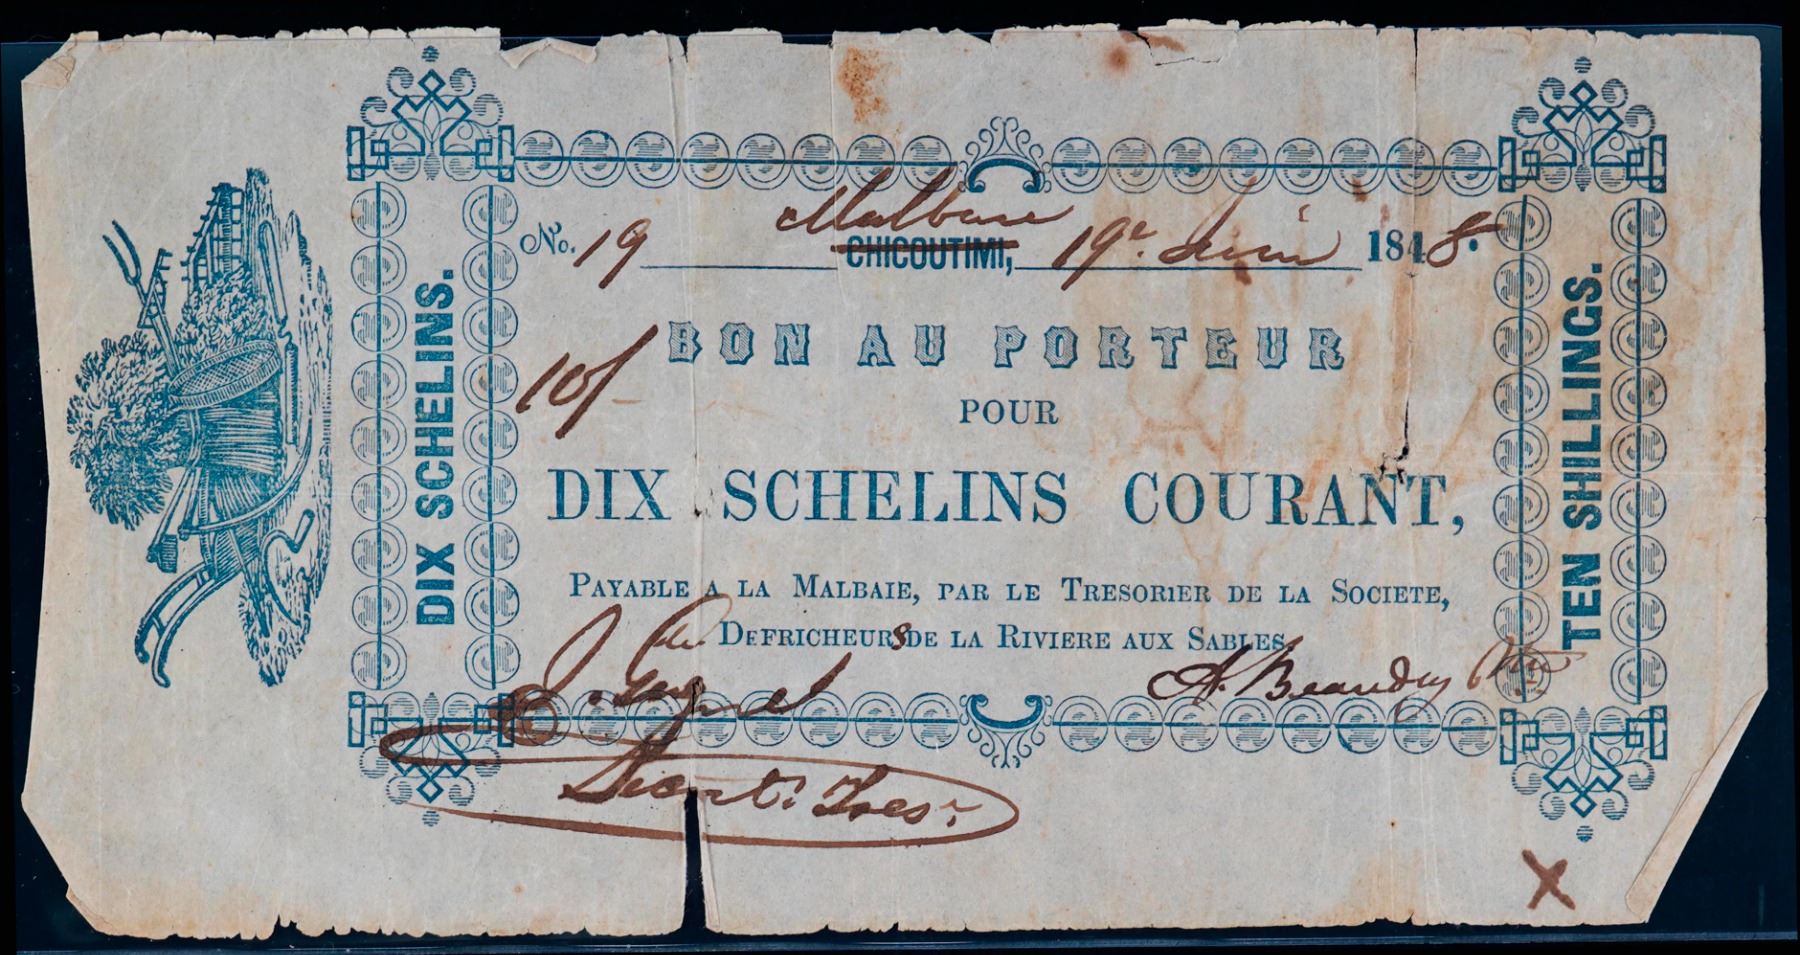 DIX SCHELINS.
No. 19 Malbaie CHICOUTIMI, 19e. Juin 1848.
10/-
BON AU PORTEUR
POUR
DIX SCHELINS COURANT,
PAYABLE A LA MALBAIE, PAR LE TRESORIER DE LA SOCIETE,
DEFRICHEURS DE LA RIVIERE AUX SABLES.
A. Beaudry
Secrt. Tresr.
TEN SHILLINGS.
X